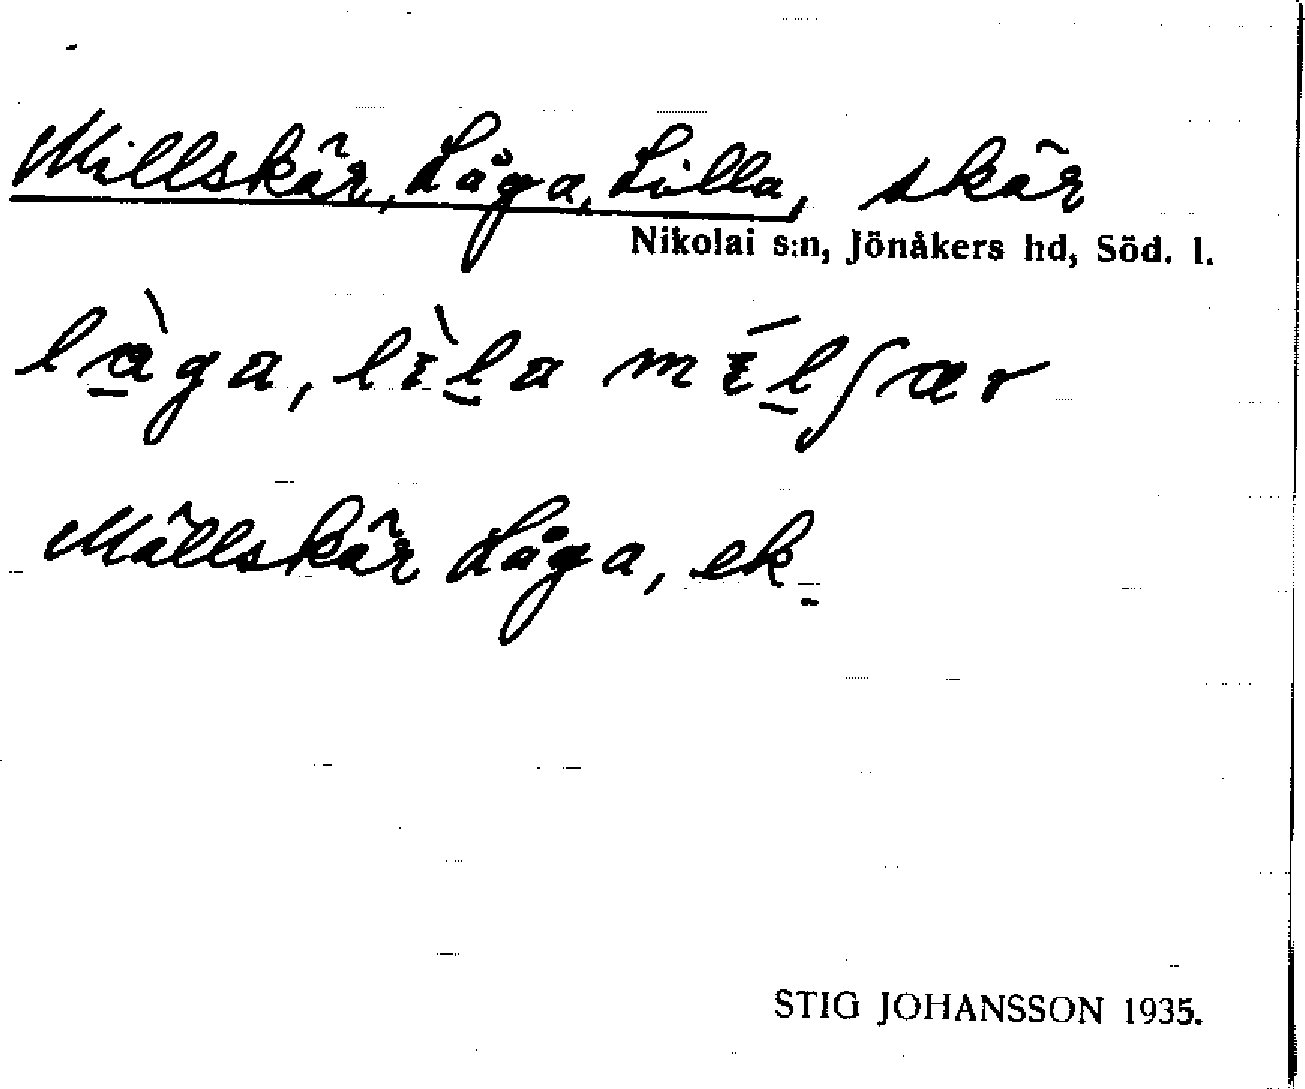 Millskär, Låga, Lilla, skär
Nikolai s:n, Jönåkers hd, Söd. l.
là̱ga, lɪ̀ḻa mɪ́ḻʃær
Mällskär Låga, ek.
STIG JOHANSSON 1935.